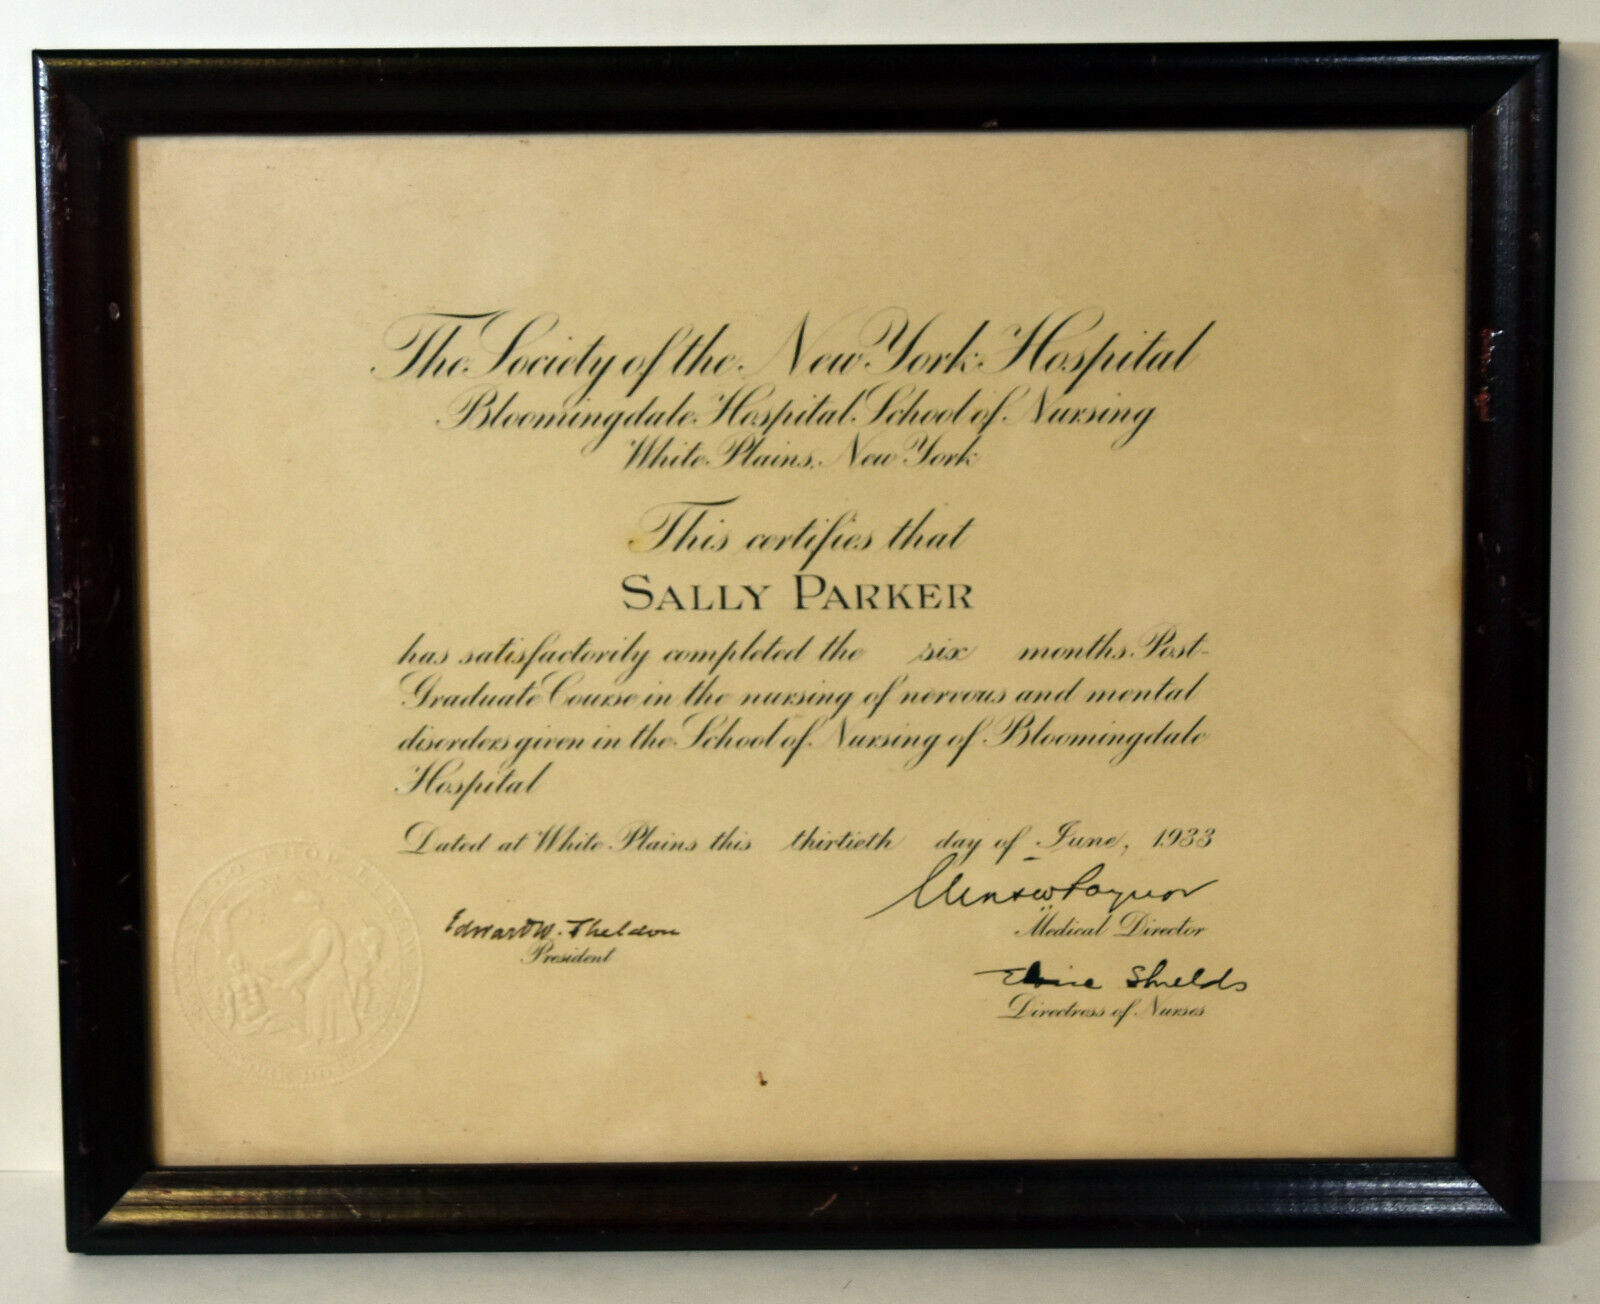 The Society of the New York Hospital
Bloomingdale Hospital School of Nursing
White Plains, New York
This certifies that
SALLY PARKER
has satisfactorily completed the six months Post-
Graduate Course in the nursing of nervous and mental
disorders given in the School of Nursing of Bloomingdale
Hospital
Dated at White Plains this thirtieth day of June, 1933
Edward W. Sheldon
President
Medical Director
Elsie Shields
Directress of Nurses